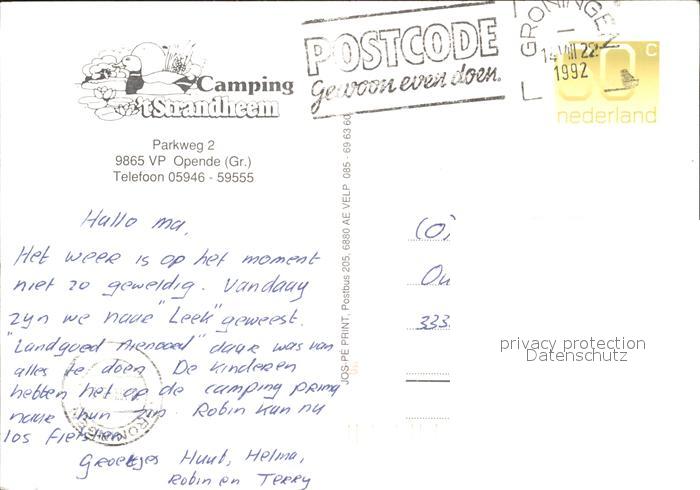 POSTCODE
gewoon even doen.
GRONINGEN
14 VIII 22
1992
60 c
nederland
Camping
't Strandheem
Parkweg 2
9865 VP Opende (Gr.)
Telefoon 05946 - 59555
JOS-PÉ PRINT, Postbus 205, 6880 AE VELP 085 - 69 63 60
Hallo ma,
Het weer is op het moment
niet zo geweldig. Vandaag
zyn we naar "Leek" geweest.
"Landgoed Nienoord" daar was van
alles te doen. De kinderen
hebben het op de camping prima
naar hun zin. Robin kan nu
los fietsen.
Groetjes Huub, Helma,
Robin en Terry
333
privacy protection
Datenschutz